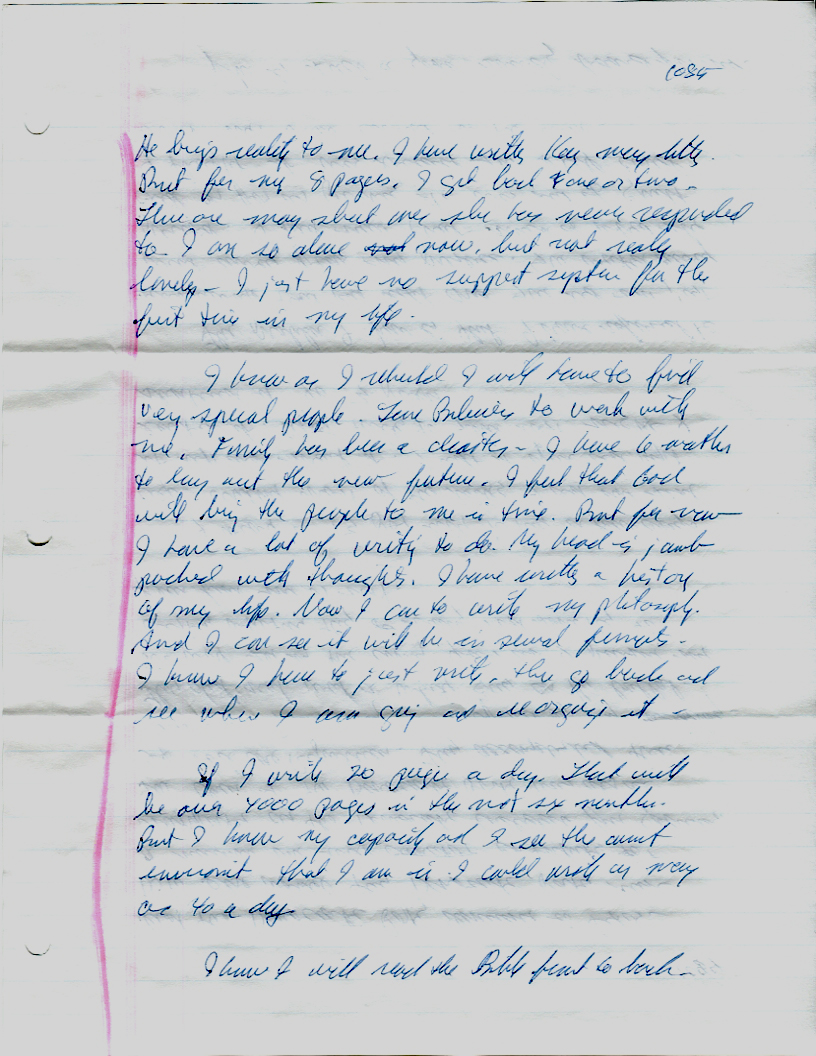 He brings reality to me. I have written Kay many letters.
But for my 8 pages, I get back one or two.
There are many she has never responded
to. I am so alone now, but not really
lonely - I just have no support system for the
first time in my life.
I know as I rebuild I will have to find
very special people. True Believers to work with
me. Family has been a disaster - I have 6 months
to lay out the new future. I feel that God
will bring the people to me in time. But for now
I have a lot of writing to do. My head is jamb
packed with thoughts. I have written a history
of my life. Now I am to write my philosophy.
And I can see it will be in several formats.
I know I have to just write, then go back and
see where I am going and reorganize it -
If I write 20 pages a day. That will
be over 4000 pages in the next six months.
But I know my capacity and I see the current
environment that I am in. I could write as many
as 40 a day
I know I will read the Bible front to back -